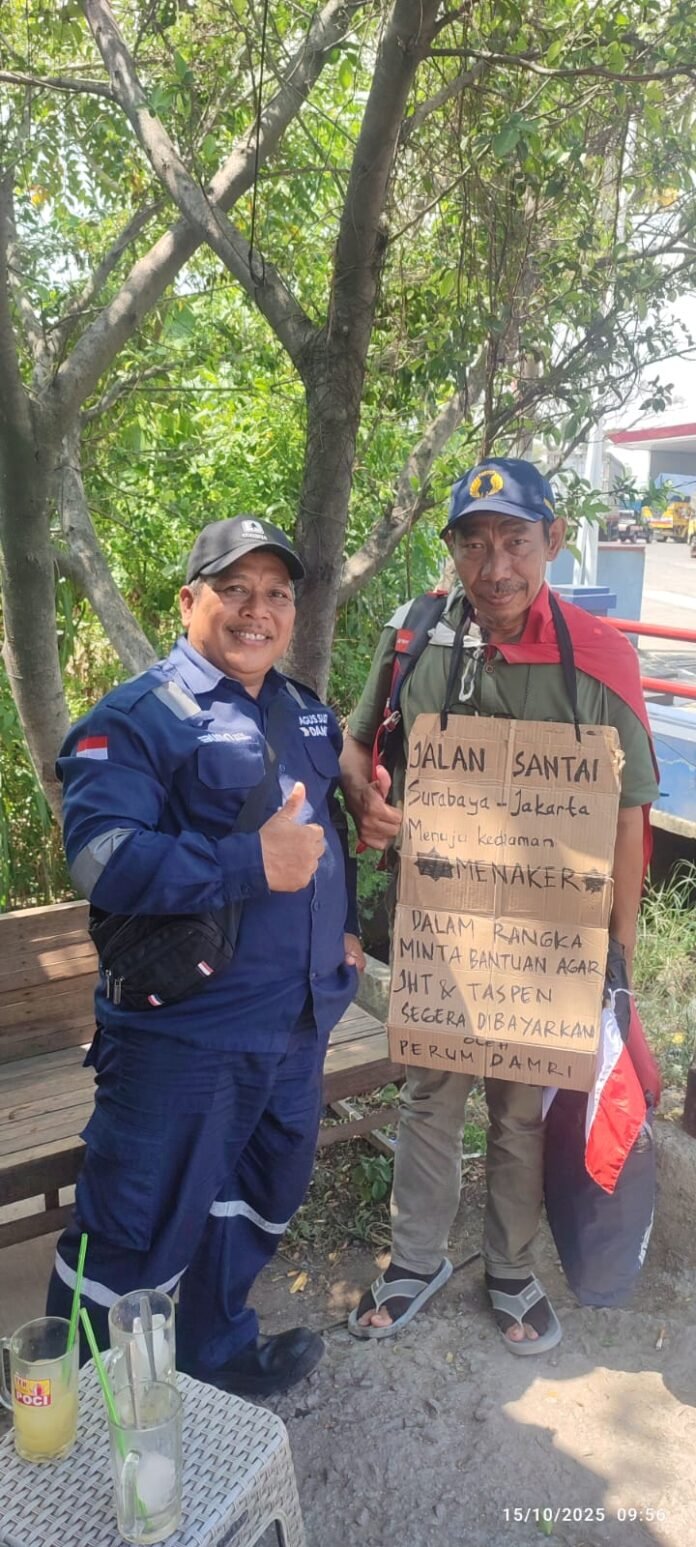 AGUS SU
DAM
JALAN SANTAI
Surabaya - Jakarta
Menuju kediaman
MENAKER
DALAM RANGKA
MINTA BANTUAN AGAR
JHT & TASPEN
SEGERA DIBAYARKAN
OLEH
PERUM DAMRI
POCI
15/10/2025 09:56